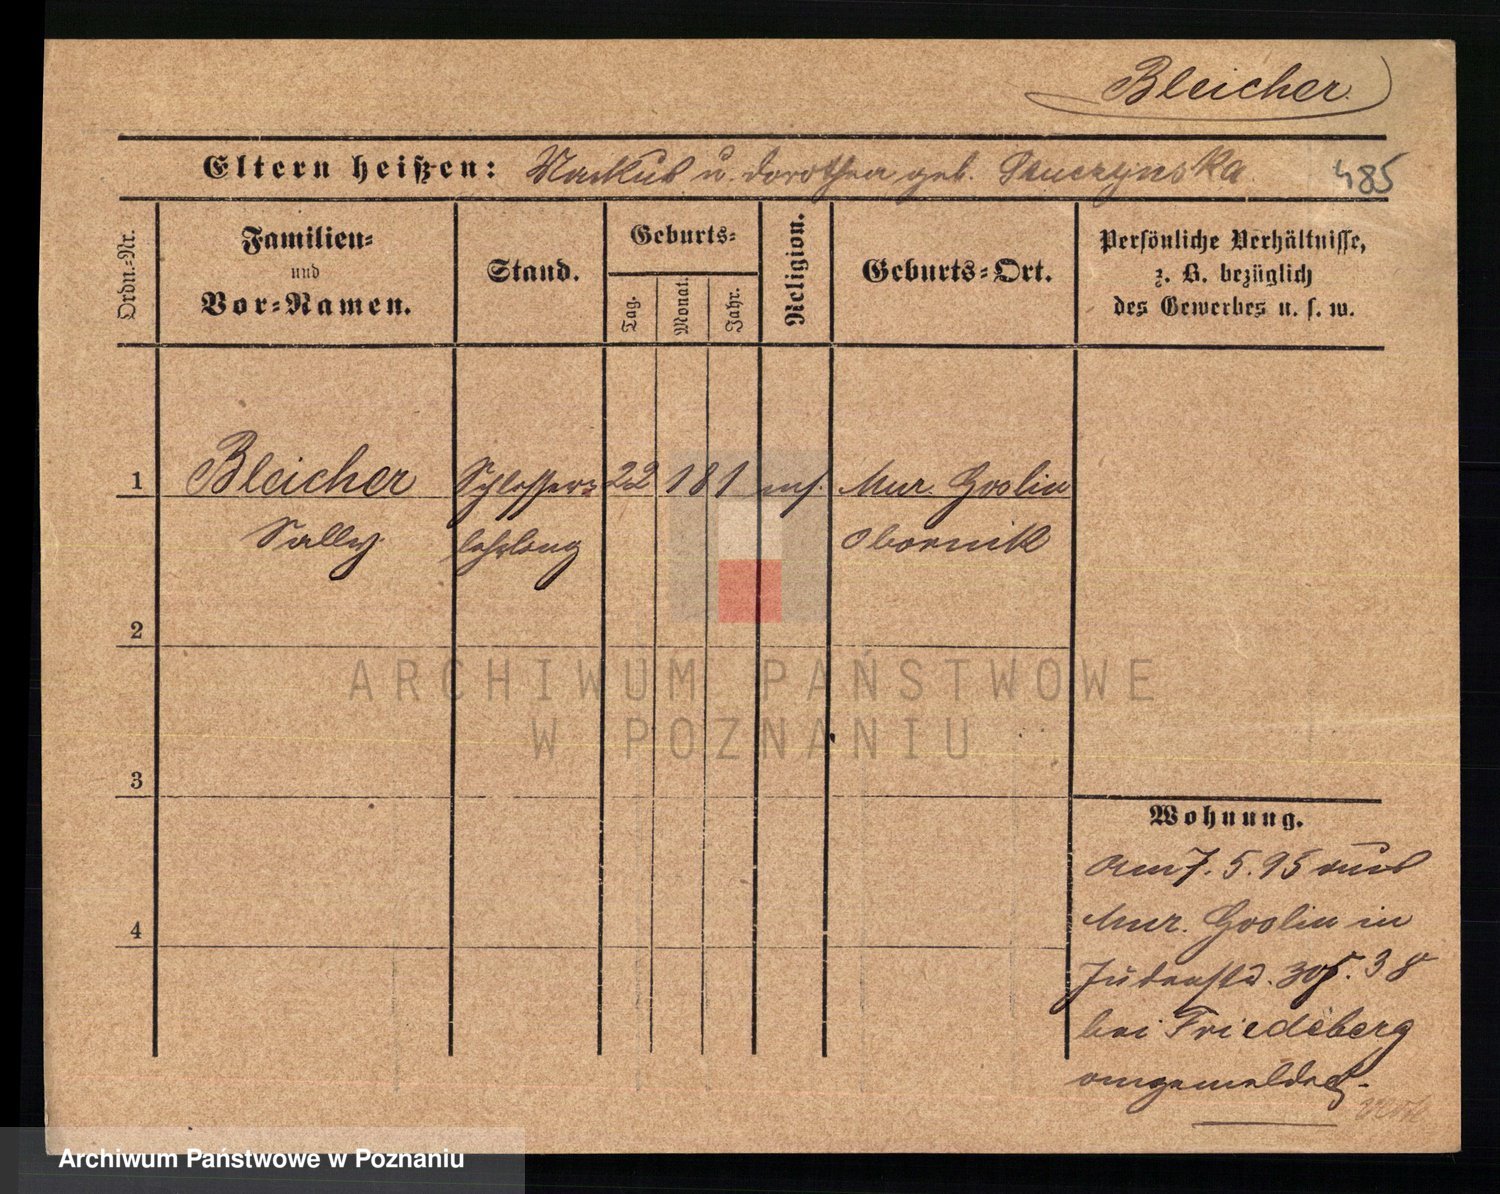 Bleicher.
Eltern heißen: Markus u. Dorothea geb.
485
Ordn.-Nr.
Familien-
und
Vor-Namen.
Stand.
Geburts-
Tag.
Monat.
Jahr.
Religion.
Geburts-Ort.
Persönliche Verhältnisse,
z. B. bezüglich
des Gewerbes u. s. w.
1
Bleicher Schlosser- 22 1 81 ms. Mur. Goslin
Sally lehrling Obornik
2
3
4
ARCHIWUM PAŃSTWOWE
W POZNANIU
Wohnung.
Am 7.5.95 aus
Mur. Goslin in
Judenstr. 38
bei Friedeberg
angemeldet.
Archiwum Państwowe w Poznaniu